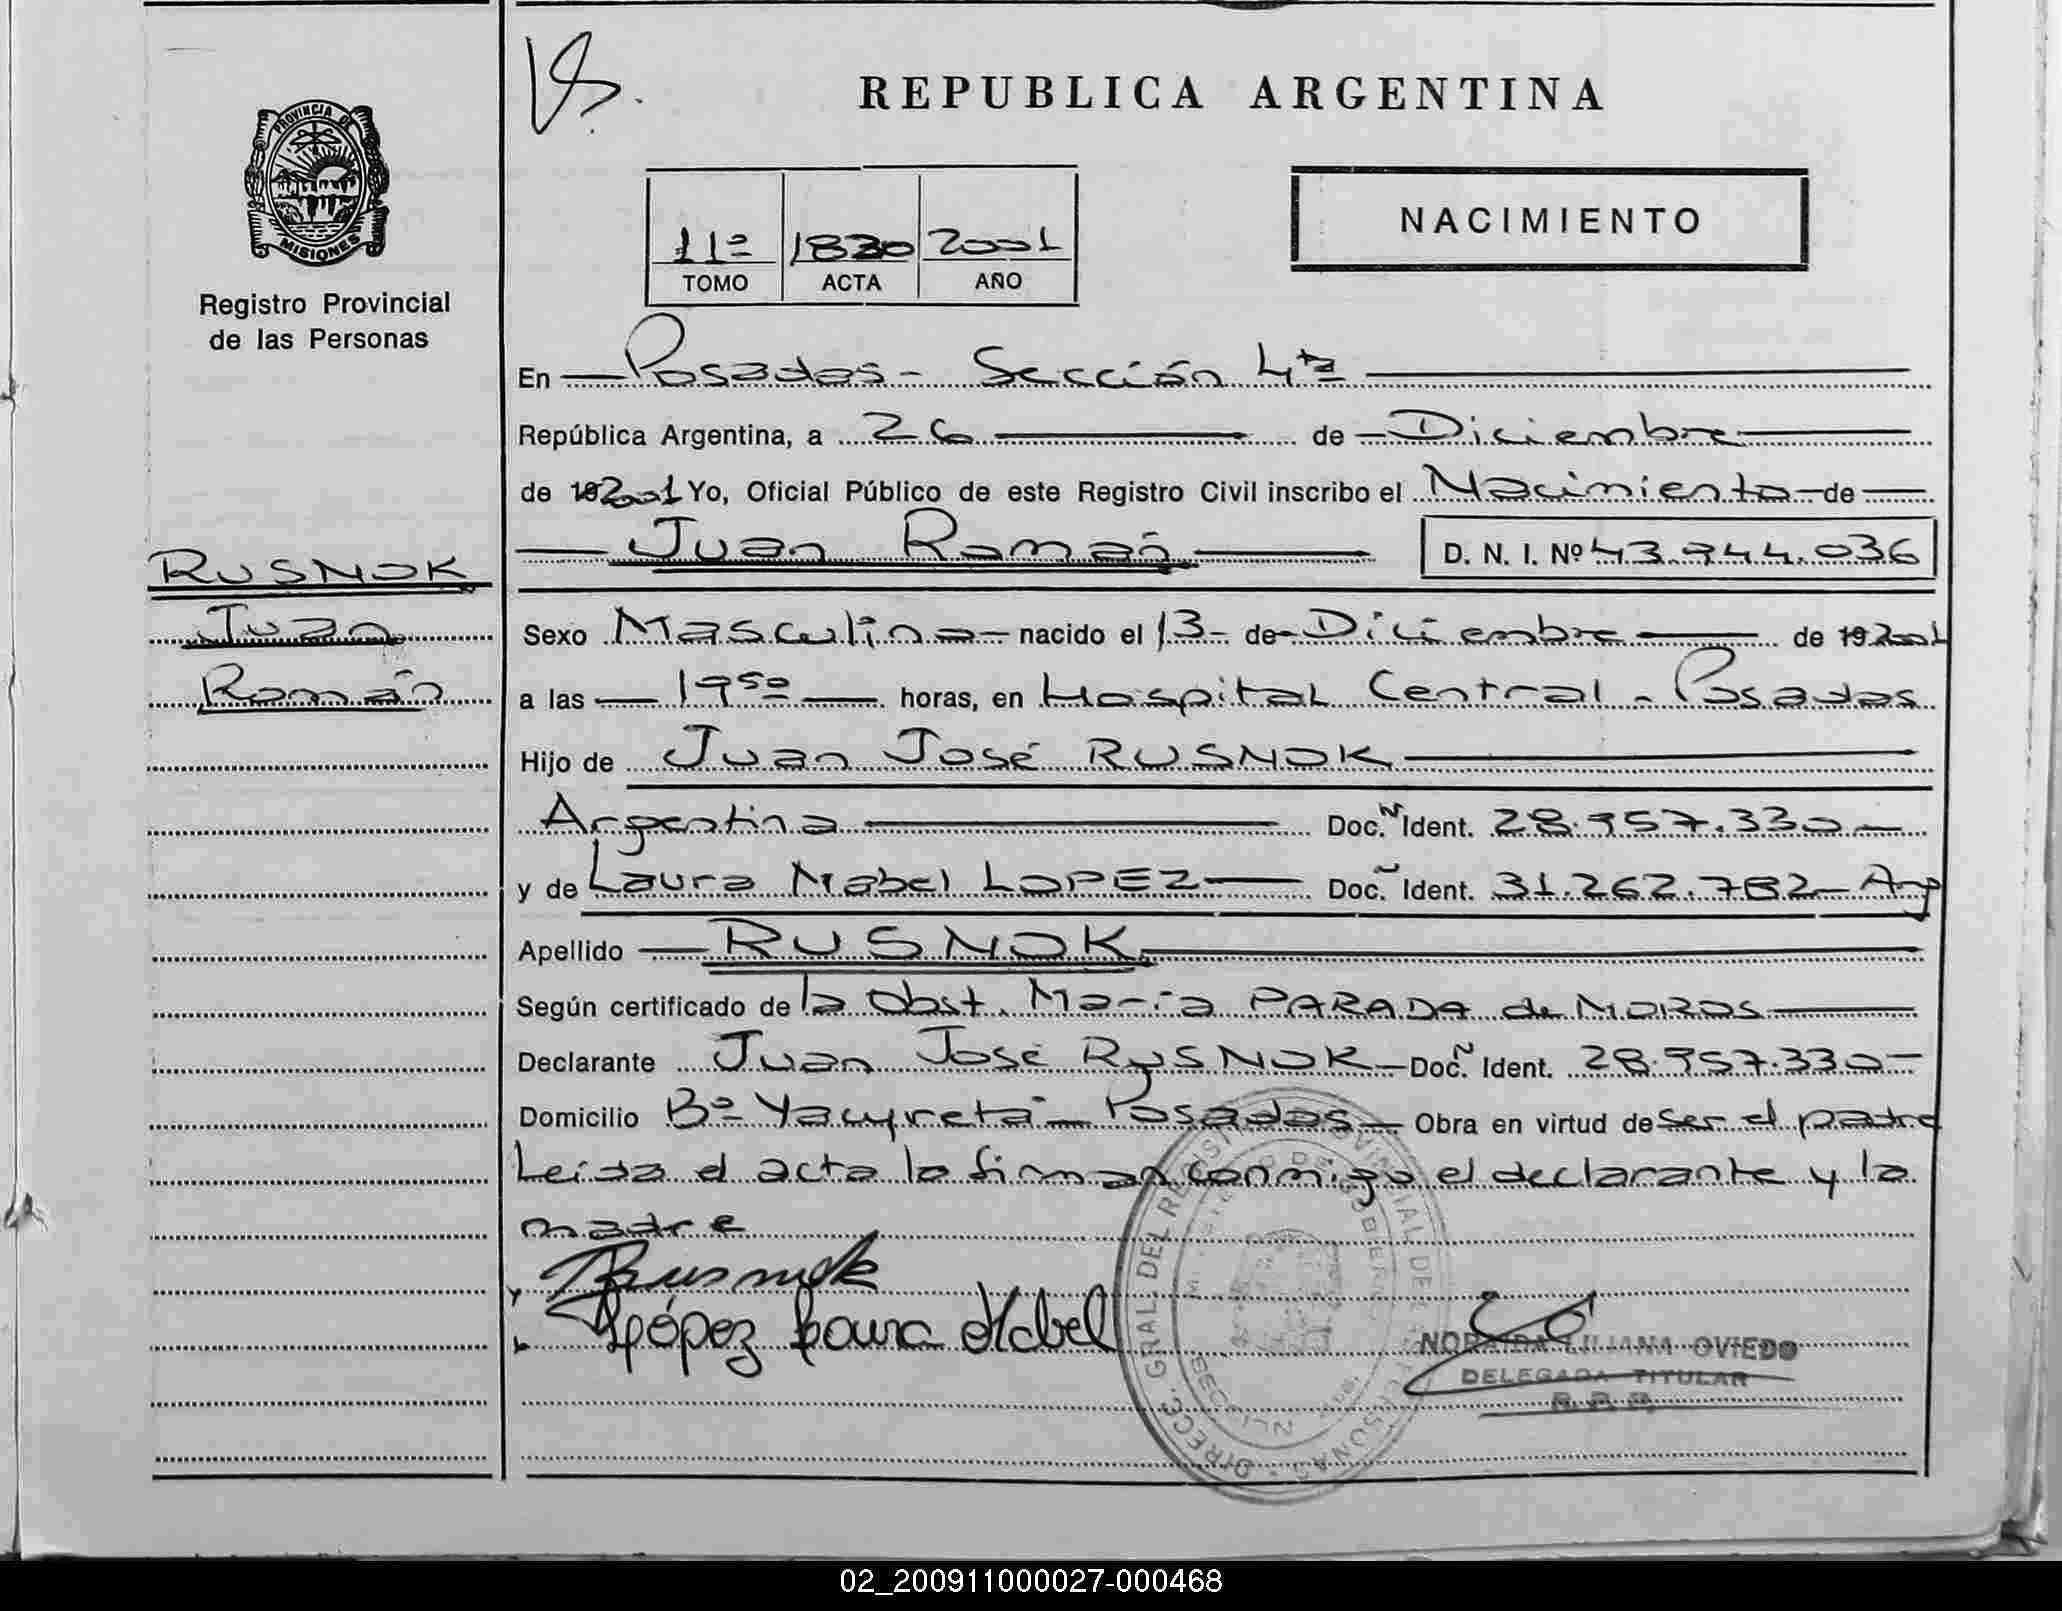 REPUBLICA ARGENTINA
PROVINCIA DE
MISIONES
Registro Provincial
de las Personas
11º 1830 2001
TOMO ACTA AÑO
NACIMIENTO
En Posadas - Sección 4ta
República Argentina, a 26 de Diciembre
de 192001 Yo, Oficial Público de este Registro Civil inscribo el Nacimiento de
Juan Román D. N. I. Nº 43.944.036
RUSNOK
Juan
Román
Sexo Masculino - nacido el 13 - de - Diciembre de 192001
a las 19 50 horas, en Hospital Central - Posadas
Hijo de Juan José RUSNOK
Argentina Doc. N Ident. 28.957.330
y de Laura Mabel LOPEZ Doc. Ident. 31.262.782 - Arg
Apellido RUSNOK
Según certificado de la Obst. María PARADA de MOROS
Declarante Juan José RUSNOK - Doc. N Ident. 28.957.330
Domicilio Bº Yacyretá - Posadas - Obra en virtud de ser el padre
Leída el acta la firman conmigo el declarante y la
madre
Rusnok
López Laura Mabel
DIRECC. GRAL. DEL REGISTRO PROVINCIAL DE LAS PERSONAS
NORAIDA LILIANA OVIEDO
DELEGADA TITULAR
R. P. P.
02_200911000027-000468